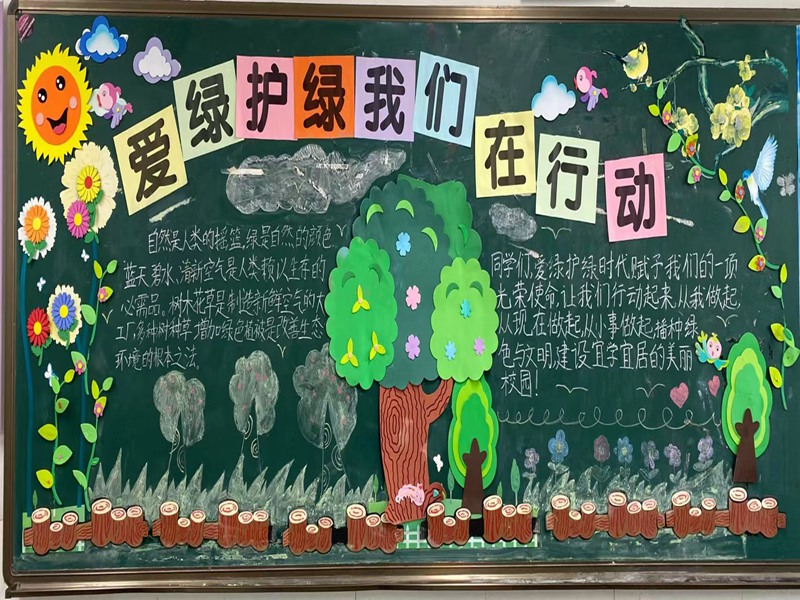 爱绿护绿我们在行动
自然是人类的摇篮,绿是自然的颜色,
蓝天、碧水、清新空气是人类赖以生存的
必需品。树木花草是制造新鲜空气的大
工厂,多种树种草,增加绿色植被是改善生态
环境的根本之法。
同学们,爱绿护绿时代赋予我们的一项
光荣使命,让我们行动起来,从我做起,
从现在做起,从小事做起,播种绿
色与文明,建设宜学宜居的美丽
校园!